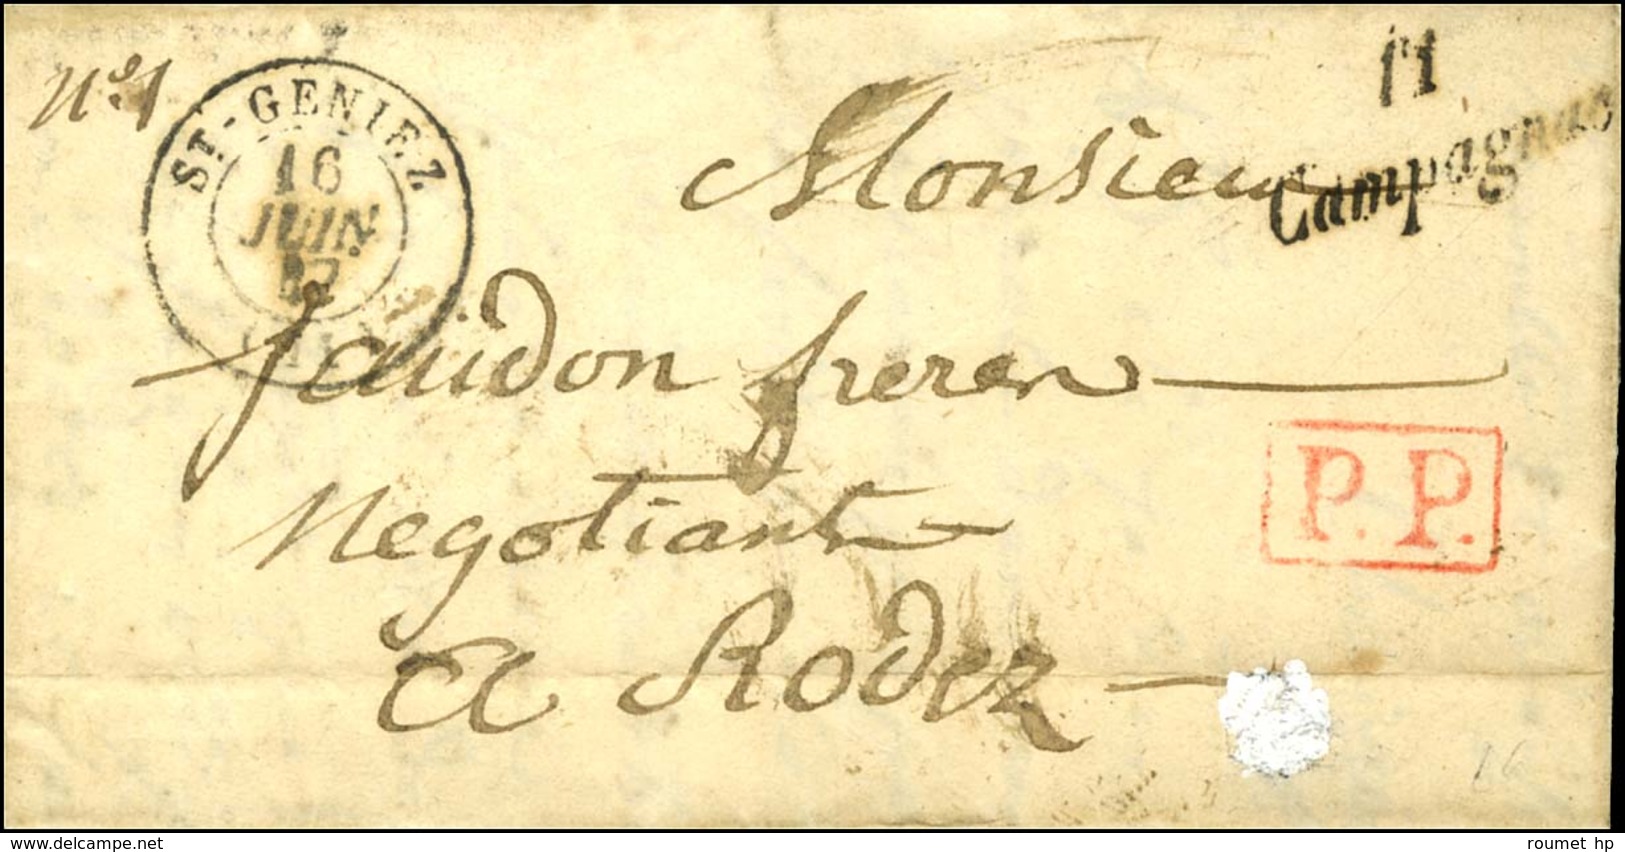 N° 1
ST-GENIEZ
16
JUIN
(11)
11
Campagnac
Monsieur
jaudon freres
Negotiant
A Rodez
P.P.
16
roumet hp